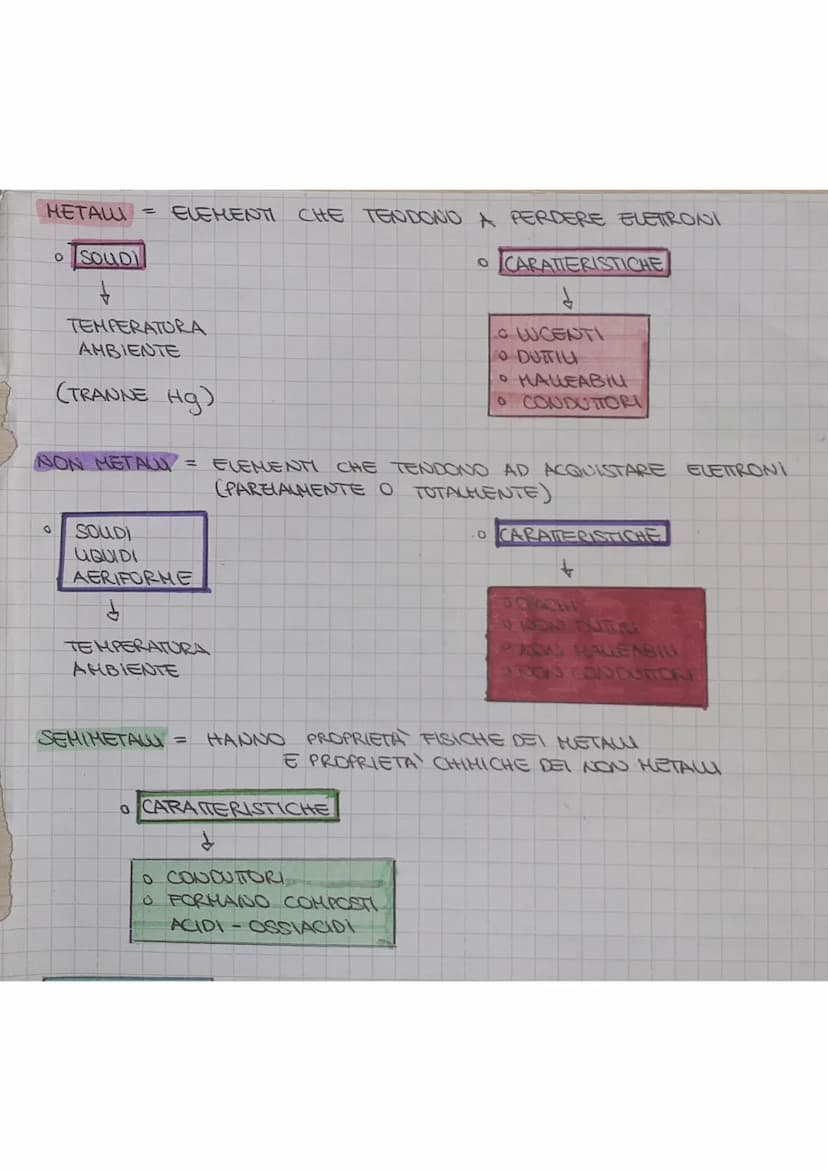 METALLI = ELEMENTI CHE TENDONO A PERDERE ELETTRONI
SOLIDI
TEMPERATURA
AMBIENTE
(TRANNE Hg)
CARATTERISTICHE
LUCENTI
DUTTILI
MALLEABILI
CONDUTTORI
NON METALLI = ELEMENTI CHE TENDONO AD ACQUISTARE ELETTRONI
(PARZIALMENTE O TOTALMENTE)
SOLIDI
LIQUIDI
AERIFORME
TEMPERATURA
AMBIENTE
CARATTERISTICHE
OPACHI
NON DUTTILI
NON MALLEABILI
NON CONDUTTORI
SEMIMETALLI = HANNO PROPRIETÀ FISICHE DEI METALLI
E PROPRIETÀ CHIMICHE DEI NON METALLI
CARATTERISTICHE
CONDUTTORI
FORMANO COMPOSTI
ACIDI - OSSIACIDI